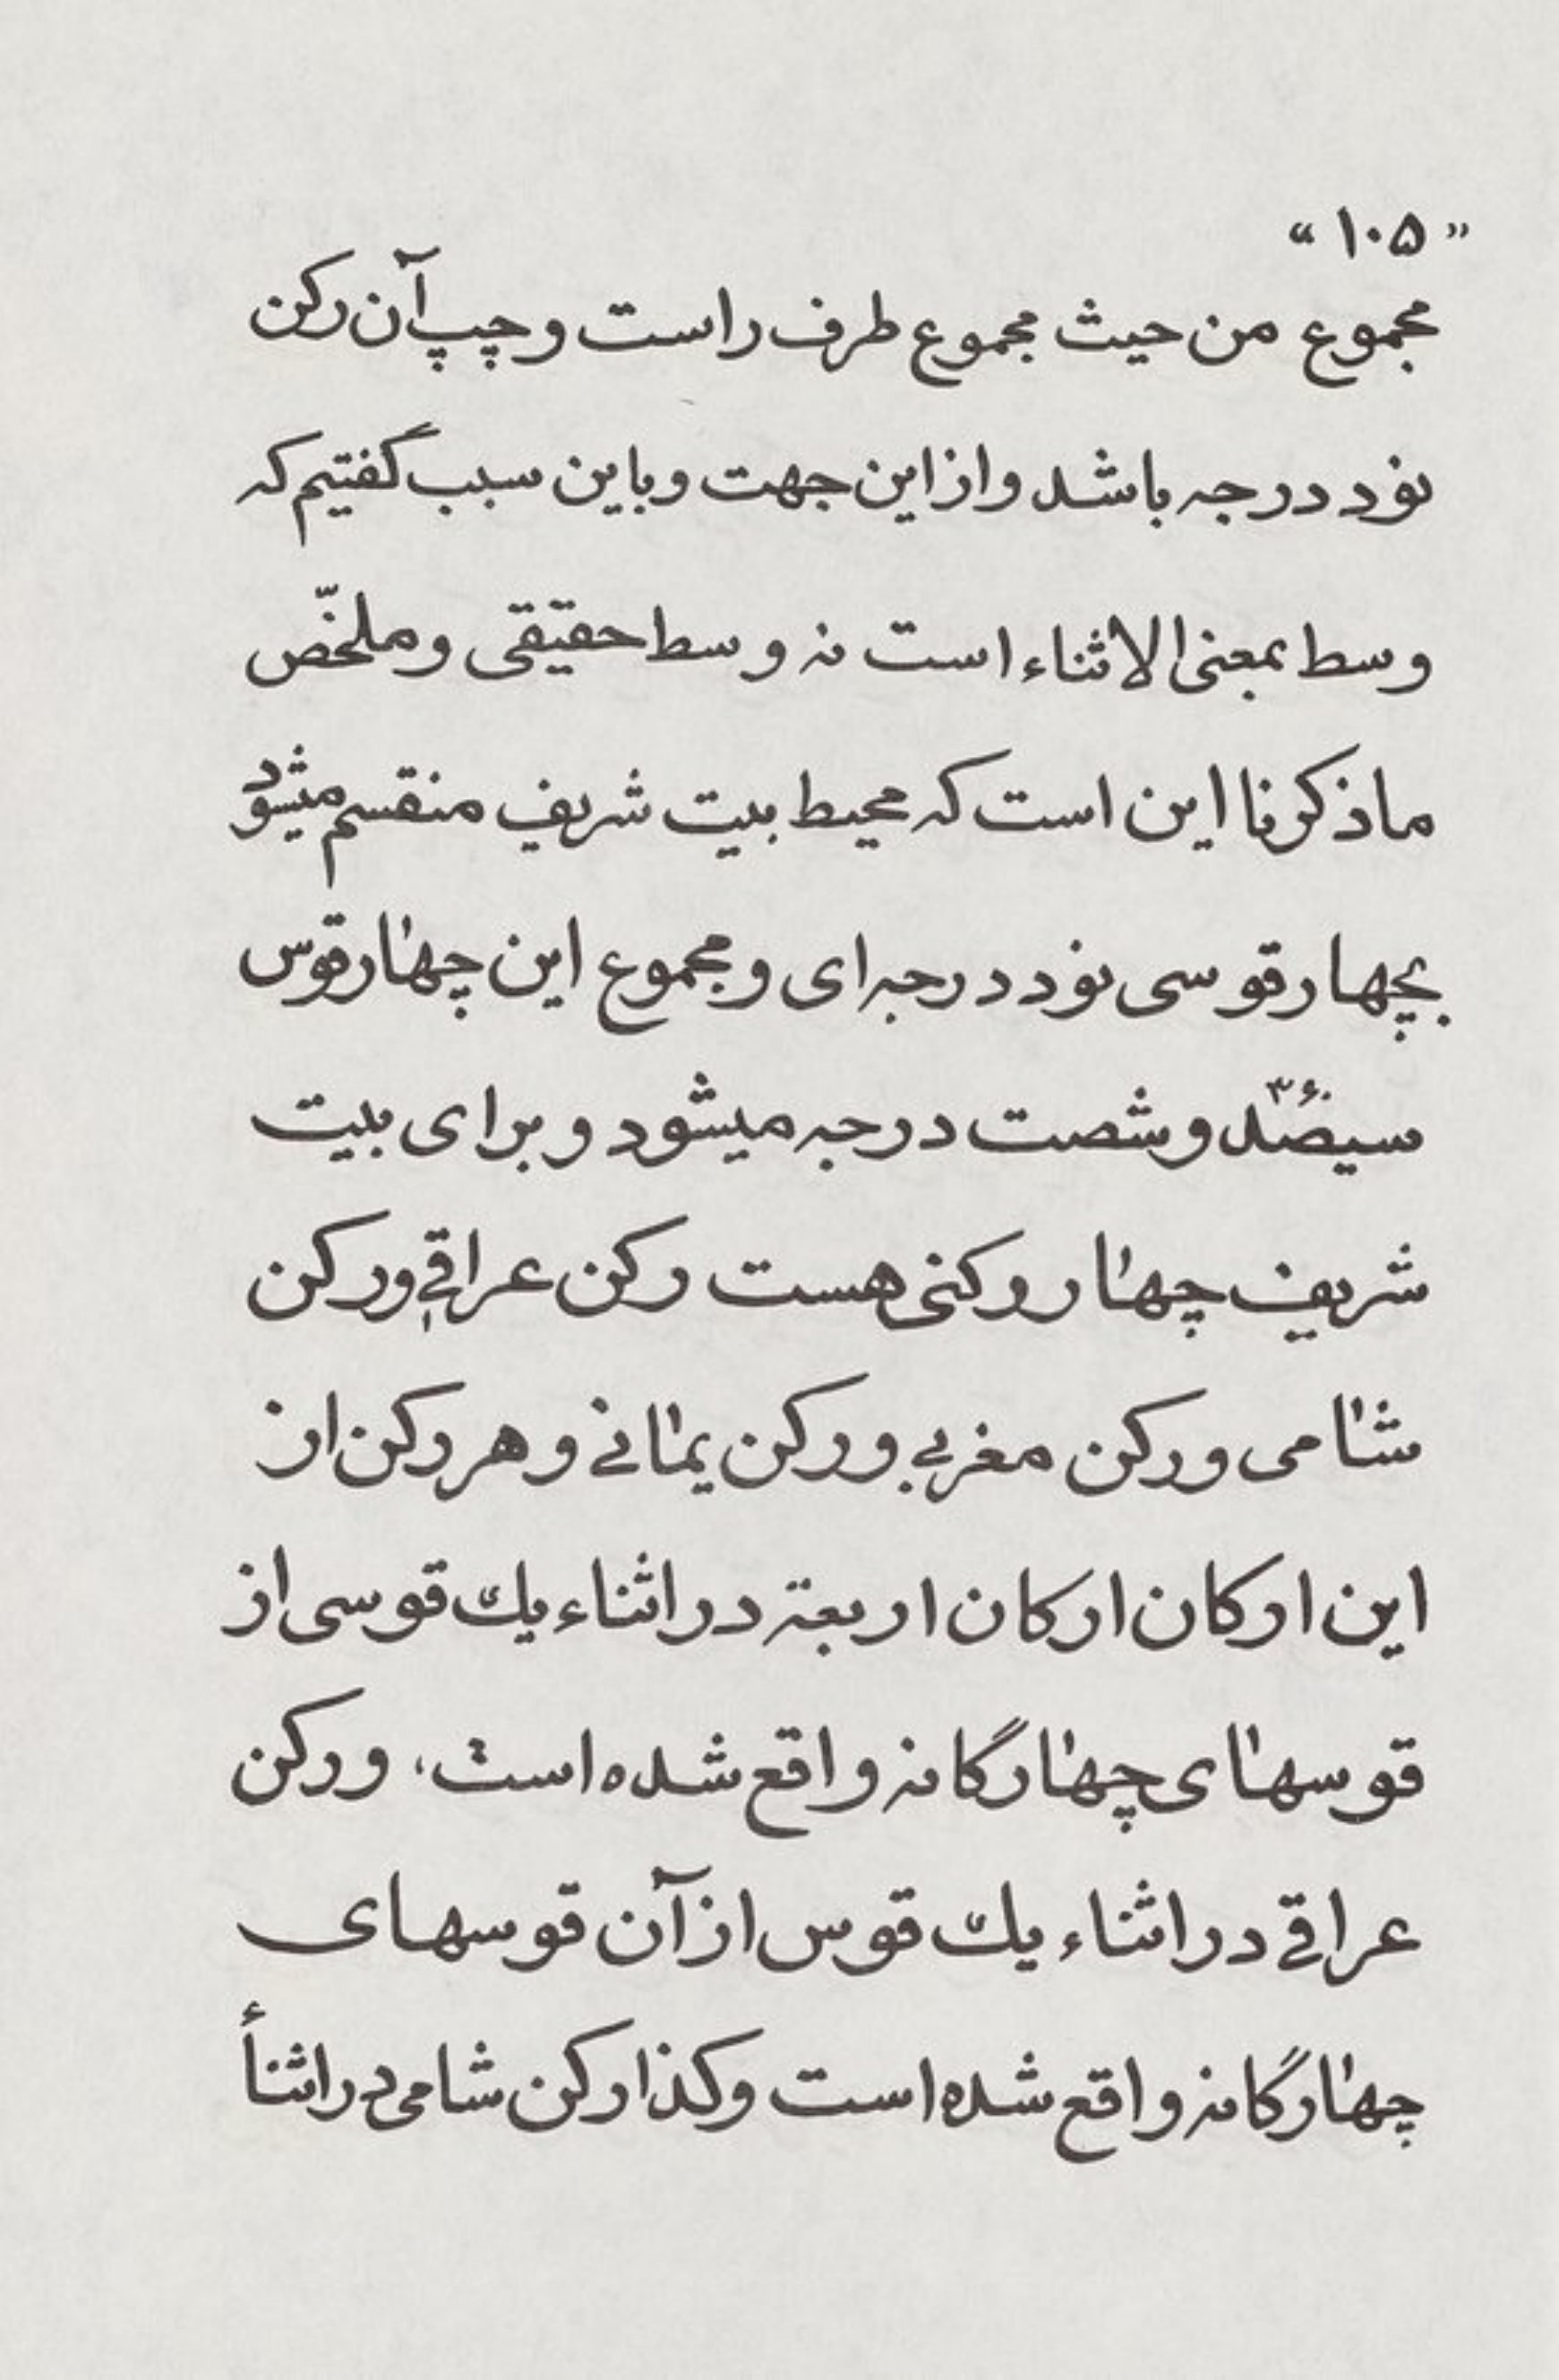 « ۱۰۵ »
مجموع من حیث مجموع طرف راست و چپ آن رکن
نود درجه باشد و از این جهت و باین سبب گفتیم که
وسط بمعنی الاثناء است نه وسط حقیقی و ملخّص
ماذکرنا این است که محیط بیت شریف منقسم میشود
بچهار قوسی نود درجه ای و مجموع این چهار قوس
سیصد و شصت درجه میشود و برای بیت
شریف چهار رکنی هست رکن عراقی و رکن
شامی و رکن مغربی و رکن یمانی و هر رکن از
این ارکان ارکان اربعة در اثناء یك قوسی از
قوسهای چهارگانه واقع شده است، و رکن
عراقی در اثناء یك قوس از آن قوسهای
چهارگانه واقع شده است و کذا رکن شامی در اثنأ